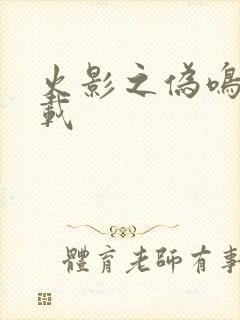 火影之偽鳴
載
體育老師有事